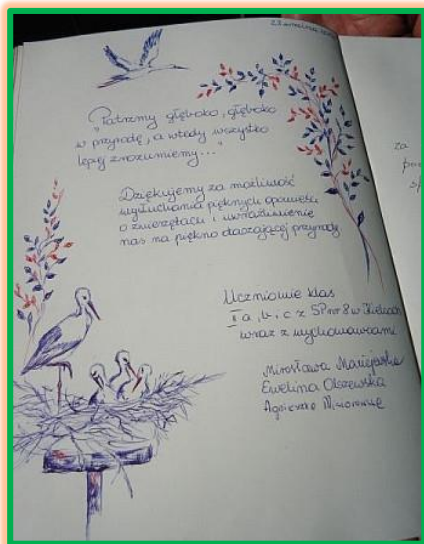 "Patrzmy głęboko, głęboko
w przyrodę, a wtedy wszystko
lepiej zrozumiemy..."
Dziękujemy za możliwość
wysłuchania pięknych opowieści
o zwierzętach i uwrażliwienie
nas na piękno otaczającej przyrody
Uczniowie klas
I a, b, c z SP nr 8 w Kielcach
wraz z wychowawcami
Mirosława
Ewelina Olszewska
Agnieszka
za